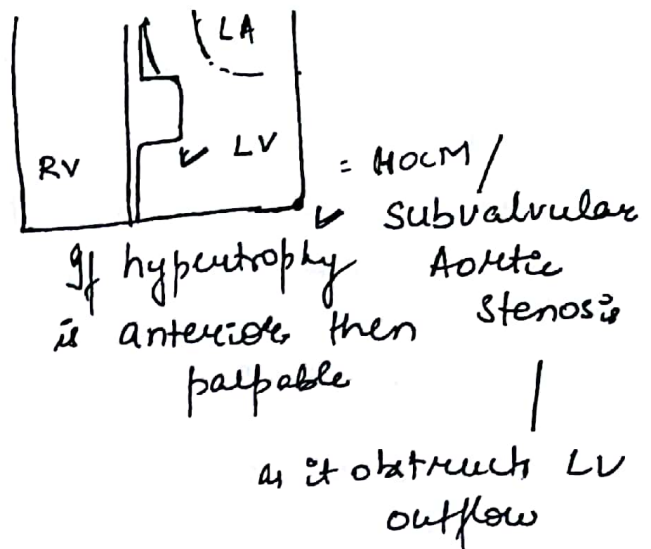 LA
RV
LV
= HOCM /
Subvalvular
Aortic
Stenosis
If hypertrophy
is anterior, then
palpable
as it obstructs LV
outflow